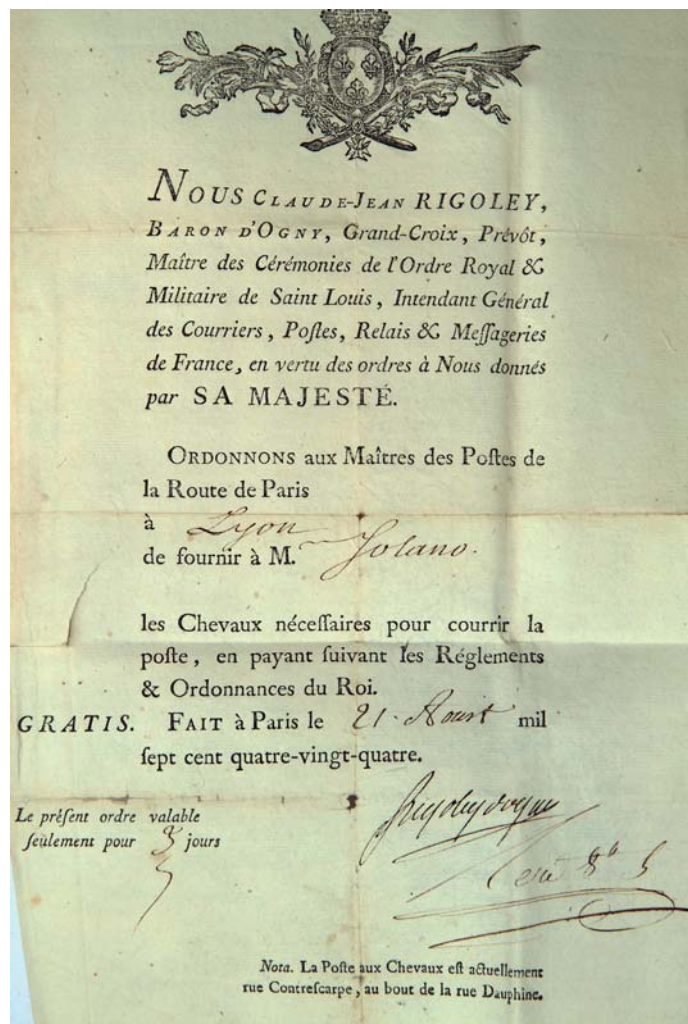 NOUS CLAUDE-JEAN RIGOLEY,
BARON D'OGNY, Grand-Croix, Prévôt,
Maître des Cérémonies de l'Ordre Royal &
Militaire de Saint Louis, Intendant Général
des Courriers, Poſtes, Relais & Meſſageries
de France, en vertu des ordres à Nous donnés
par SA MAJESTÉ.
ORDONNONS aux Maîtres des Poſtes de
la Route de Paris
à Lyon
de fournir à M. Solano.
les Chevaux néceſſaires pour courrir la
poſte, en payant ſuivant les Réglements
& Ordonnances du Roi.
GRATIS. FAIT à Paris le 21. Aoust mil
ſept cent quatre-vingt-quatre.
Le préſent ordre valable
ſeulement pour 3 jours
Rigoley dogny
Nota. La Poſte aux Chevaux eſt actuellement
rue Contreſcarpe, au bout de la rue Dauphine.